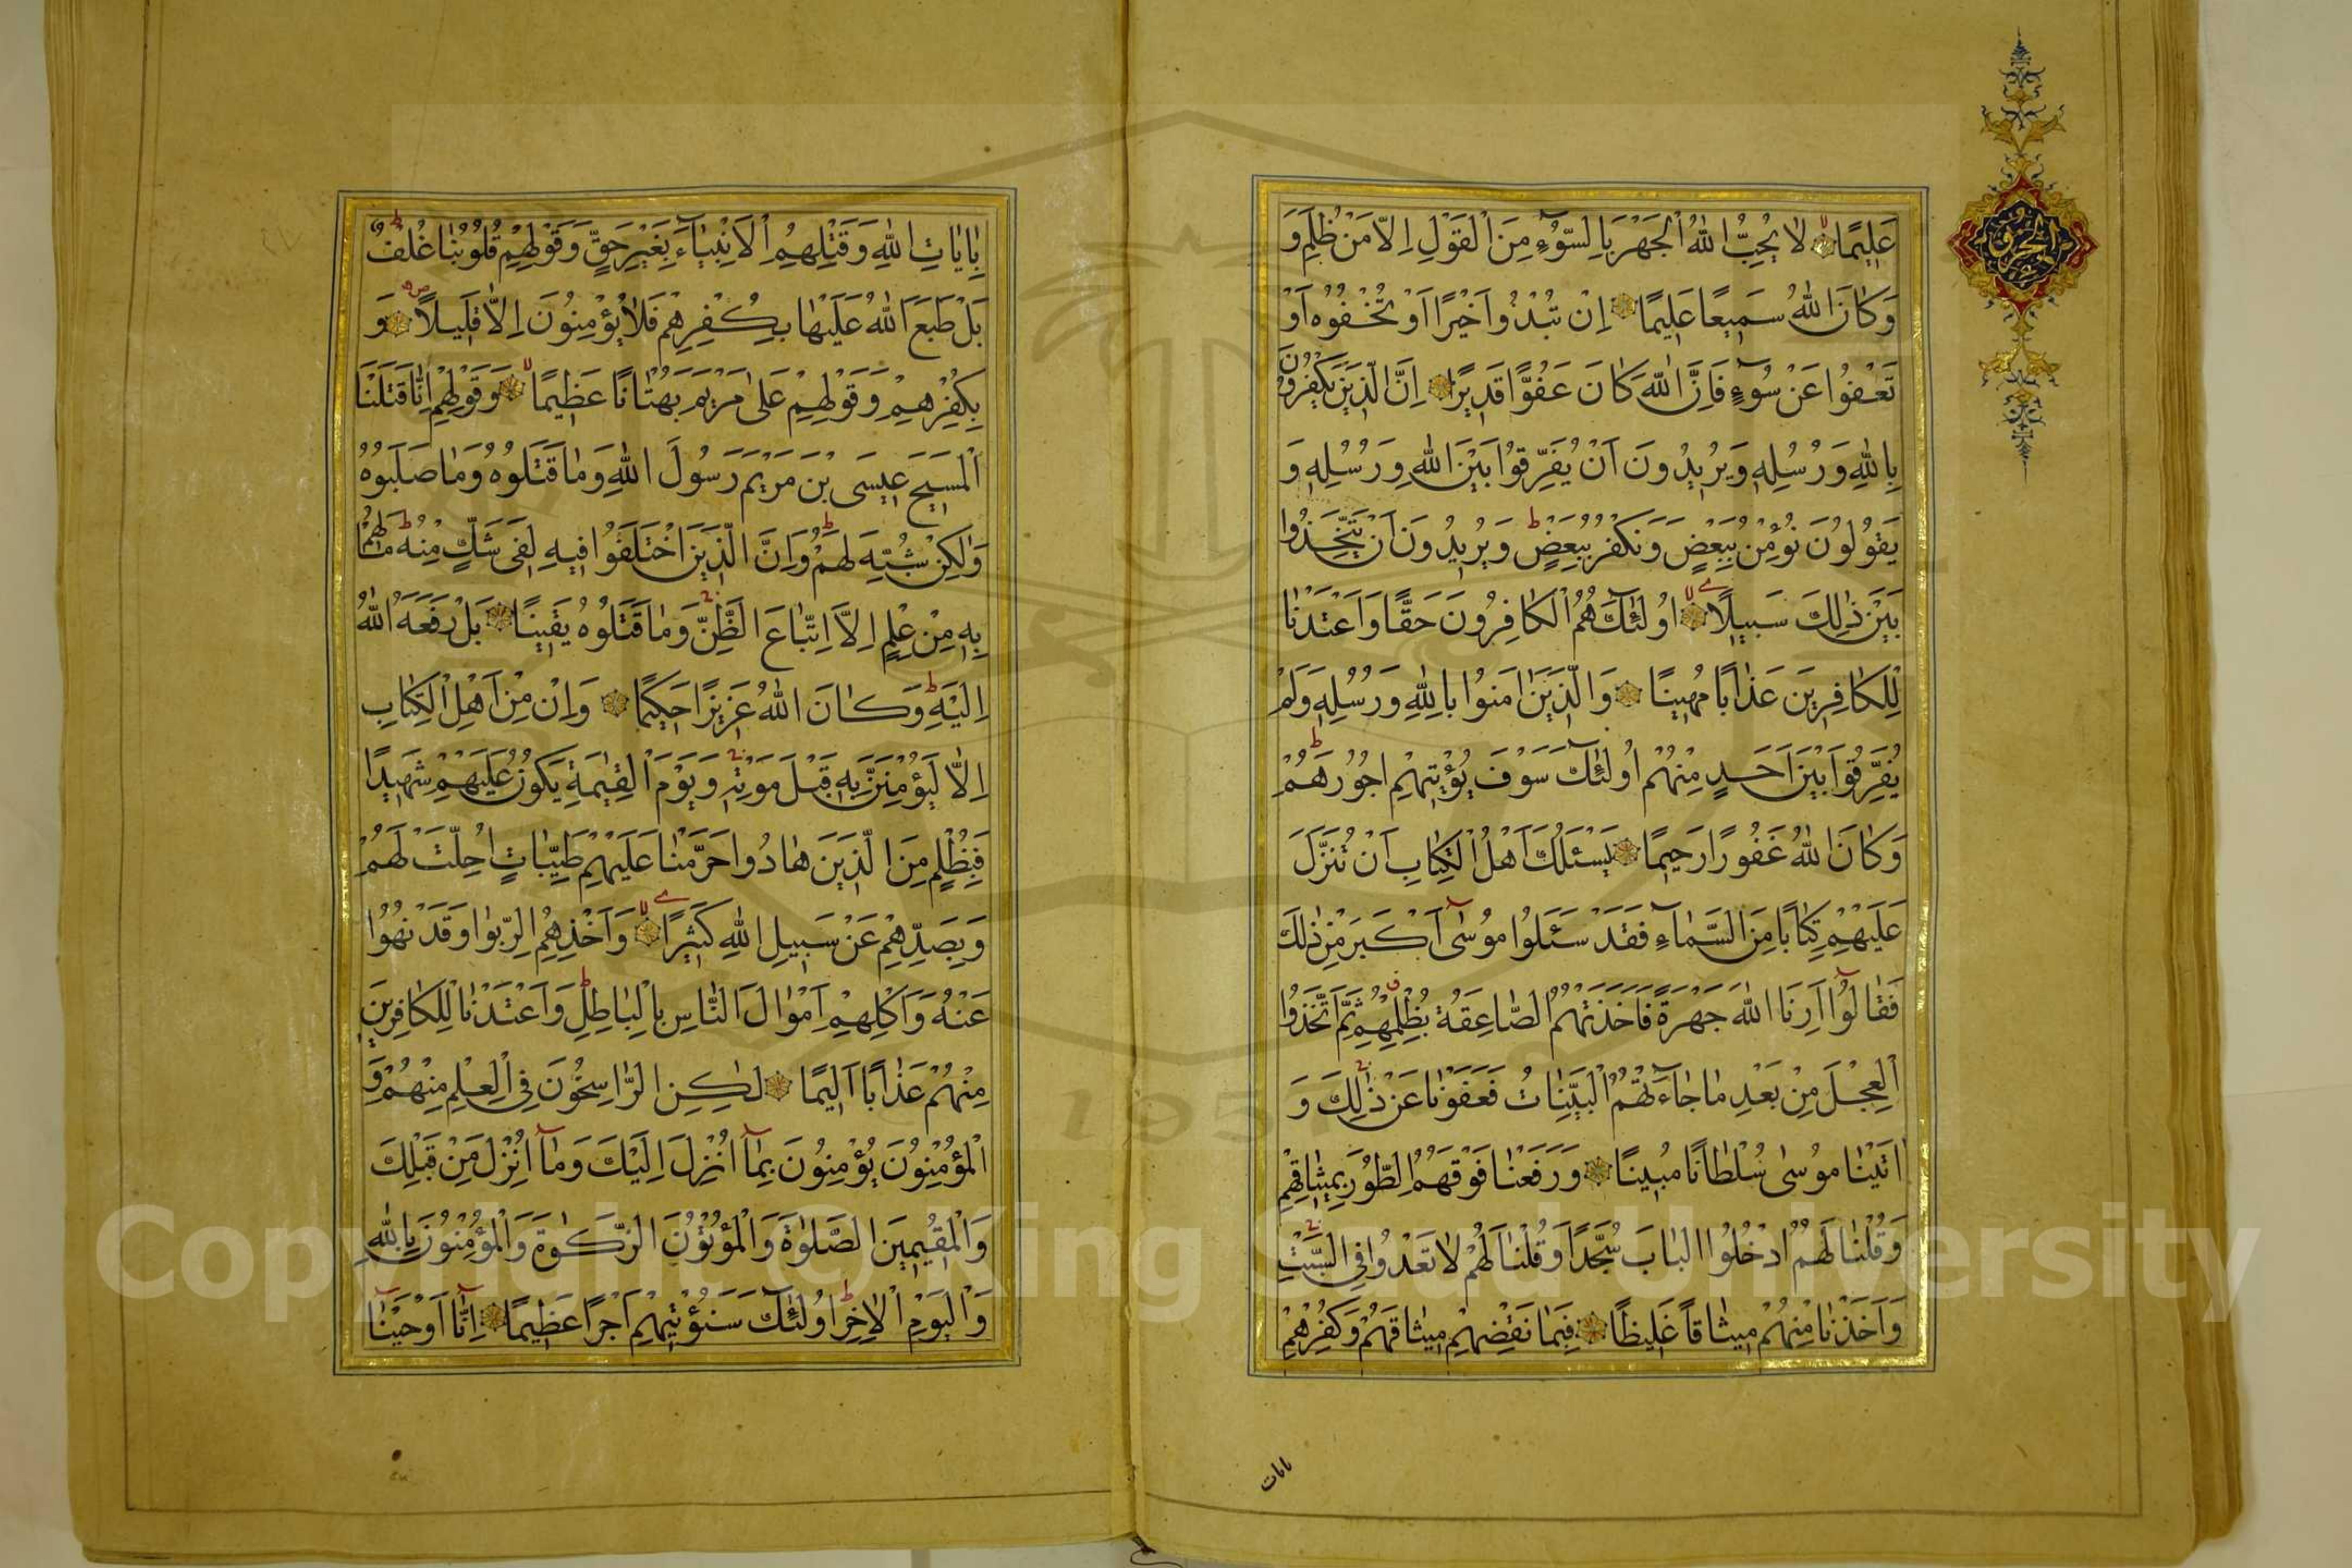 عَلِيمًا لَا يُحِبُّ اللّٰهُ الْجَهْرَ بِالسُّوٓءِ مِنَ الْقَوْلِ اِلَّا مَنْ ظُلِمَ وَ
وَكَانَ اللّٰهُ سَمِيعًا عَلِيمًا اِنْ تُبْدُوا خَيْرًا اَوْ تُخْفُوهُ اَوْ
تَعْفُوا عَنْ سُوٓءٍ فَاِنَّ اللّٰهَ كَانَ عَفُوًّا قَدِيرًا اِنَّ الَّذِينَ يَكْفُرُونَ
بِاللّٰهِ وَرُسُلِهِ وَيُرِيدُونَ اَنْ يُفَرِّقُوا بَيْنَ اللّٰهِ وَرُسُلِهِ وَ
يَقُولُونَ نُؤْمِنُ بِبَعْضٍ وَنَكْفُرُ بِبَعْضٍ وَيُرِيدُونَ اَنْ يَتَّخِذُوا
بَيْنَ ذٰلِكَ سَبِيلًا اُولٰٓئِكَ هُمُ الْكَافِرُونَ حَقًّا وَاَعْتَدْنَا
لِلْكَافِرِينَ عَذَابًا مُهِينًا وَالَّذِينَ اٰمَنُوا بِاللّٰهِ وَرُسُلِهِ وَلَمْ
يُفَرِّقُوا بَيْنَ اَحَدٍ مِنْهُمْ اُولٰٓئِكَ سَوْفَ يُؤْتِيهِمْ اُجُورَهُمْ
وَكَانَ اللّٰهُ غَفُورًا رَحِيمًا يَسْـَٔلُكَ اَهْلُ الْكِتَابِ اَنْ تُنَزِّلَ
عَلَيْهِمْ كِتَابًا مِنَ السَّمَآءِ فَقَدْ سَئَلُوا مُوسٰٓى اَكْبَرَ مِنْ ذٰلِكَ
فَقَالُوٓا اَرِنَا اللّٰهَ جَهْرَةً فَاَخَذَتْهُمُ الصَّاعِقَةُ بِظُلْمِهِمْ ثُمَّ اتَّخَذُوا
الْعِجْلَ مِنْ بَعْدِ مَا جَآءَتْهُمُ الْبَيِّنَاتُ فَعَفَوْنَا عَنْ ذٰلِكَ وَ
اٰتَيْنَا مُوسٰى سُلْطَانًا مُبِينًا وَرَفَعْنَا فَوْقَهُمُ الطُّورَ بِمِيثَاقِهِمْ
وَقُلْنَا لَهُمُ ادْخُلُوا الْبَابَ سُجَّدًا وَقُلْنَا لَهُمْ لَا تَعْدُوا فِي السَّبْتِ
وَاَخَذْنَا مِنْهُمْ مِيثَاقًا غَلِيظًا فَبِمَا نَقْضِهِمْ مِيثَاقَهُمْ وَكُفْرِهِمْ
باٰيات
بِاٰيَاتِ اللّٰهِ وَقَتْلِهِمُ الْاَنْبِيَآءَ بِغَيْرِ حَقٍّ وَقَوْلِهِمْ قُلُوبُنَا غُلْفٌ
بَلْ طَبَعَ اللّٰهُ عَلَيْهَا بِكُفْرِهِمْ فَلَا يُؤْمِنُونَ اِلَّا قَلِيلًا وَ
بِكُفْرِهِمْ وَقَوْلِهِمْ عَلٰى مَرْيَمَ بُهْتَانًا عَظِيمًا وَقَوْلِهِمْ اِنَّا قَتَلْنَا
الْمَسِيحَ عِيسَى بْنَ مَرْيَمَ رَسُولَ اللّٰهِ وَمَا قَتَلُوهُ وَمَا صَلَبُوهُ
وَلٰكِنْ شُبِّهَ لَهُمْ وَاِنَّ الَّذِينَ اخْتَلَفُوا فِيهِ لَفِي شَكٍّ مِنْهُ مَا لَهُمْ
بِهِ مِنْ عِلْمٍ اِلَّا اتِّبَاعَ الظَّنِّ وَمَا قَتَلُوهُ يَقِينًا بَلْ رَفَعَهُ اللّٰهُ
اِلَيْهِ وَكَانَ اللّٰهُ عَزِيزًا حَكِيمًا وَاِنْ مِنْ اَهْلِ الْكِتَابِ
اِلَّا لَيُؤْمِنَنَّ بِهِ قَبْلَ مَوْتِهِ وَيَوْمَ الْقِيٰمَةِ يَكُونُ عَلَيْهِمْ شَهِيدًا
فَبِظُلْمٍ مِنَ الَّذِينَ هَادُوا حَرَّمْنَا عَلَيْهِمْ طَيِّبَاتٍ اُحِلَّتْ لَهُمْ
وَبِصَدِّهِمْ عَنْ سَبِيلِ اللّٰهِ كَثِيرًا وَاَخْذِهِمُ الرِّبٰوا وَقَدْ نُهُوا
عَنْهُ وَاَكْلِهِمْ اَمْوَالَ النَّاسِ بِالْبَاطِلِ وَاَعْتَدْنَا لِلْكَافِرِينَ
مِنْهُمْ عَذَابًا اَلِيمًا لٰكِنِ الرَّاسِخُونَ فِي الْعِلْمِ مِنْهُمْ وَ
الْمُؤْمِنُونَ يُؤْمِنُونَ بِمَآ اُنْزِلَ اِلَيْكَ وَمَآ اُنْزِلَ مِنْ قَبْلِكَ
وَالْمُقِيمِينَ الصَّلٰوةَ وَالْمُؤْتُونَ الزَّكٰوةَ وَالْمُؤْمِنُونَ بِاللّٰهِ
وَالْيَوْمِ الْاٰخِرِ اُولٰٓئِكَ سَنُؤْتِيهِمْ اَجْرًا عَظِيمًا اِنَّآ اَوْحَيْنَآ
Copyright © King Saud University
195